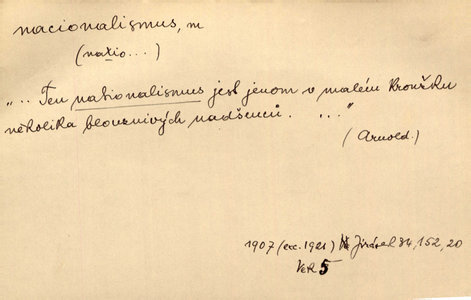 nacionalismus, m
(natio...)
„... Ten nationalismus jest jenom v malém kroužku
několika blouznivých nadšenců. ..."
(Arnold.)
1907 (exc. 1921) Jirásek 34, 152, 20